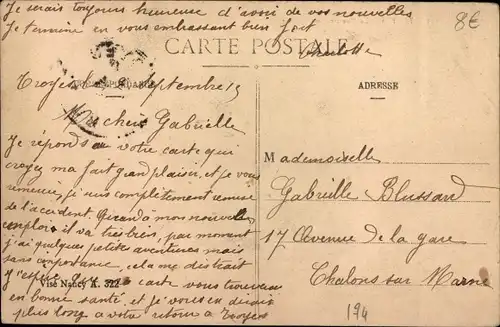 Je serais toujours heureuse d'avoir de vos nouvelles
Je termine en vous embrassant bien fort
Charlotte
8€
CARTE POSTALE
CORRESPONDANCE
ADRESSE
Troyes le 2 Septembre 15
Ma chère Gabrielle
Je réponds a votre carte qui
croyez ma fait grand plaisir, et je vous
remercie, je suis complètement remise
de l'accident. Quand a mon nouvelle
emploi il va très bien, par moment
j'ai quelques petites aventures mais
sans importance, cela me distrait
J'espère que ma carte vous trouvera
en bonne santé, et je vous en dirais
plus long a votre retour a Troyes
Mademoiselle
Gabrielle Blussard
17 Avenue de la gare
Chalons sur Marne
Visé Nancy A. 322
194